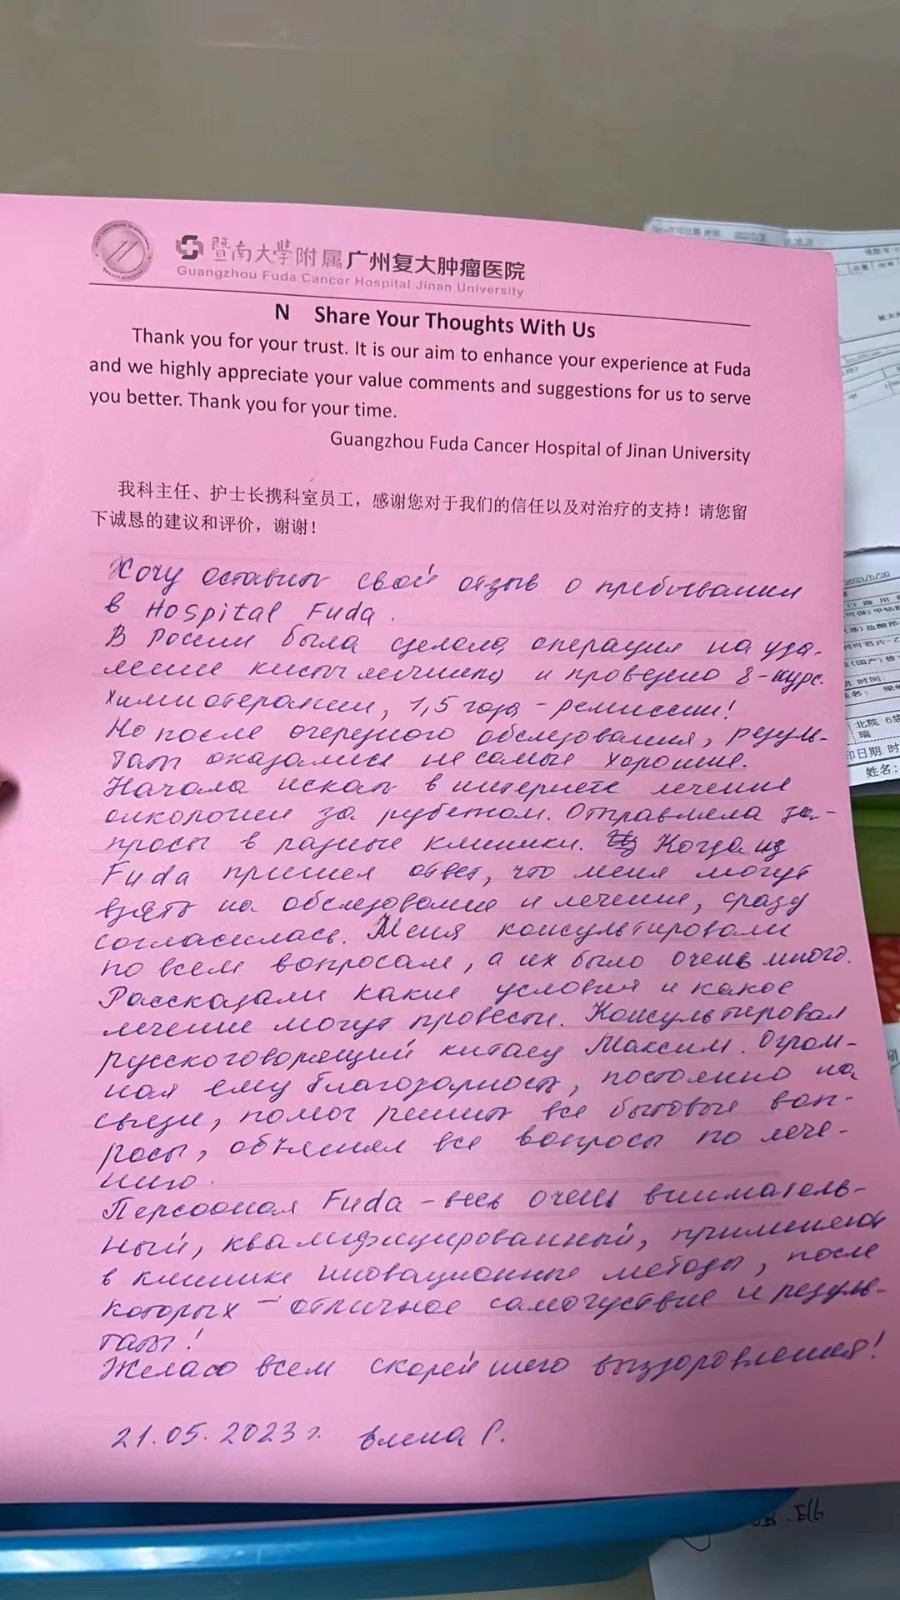 暨南大学附属广州复大肿瘤医院
Guangzhou Fuda Cancer Hospital Jinan University
N Share Your Thoughts With Us
Thank you for your trust. It is our aim to enhance your experience at Fuda
and we highly appreciate your value comments and suggestions for us to serve
you better. Thank you for your time.
Guangzhou Fuda Cancer Hospital of Jinan University
我科主任、护士长携科室员工，感谢您对于我们的信任以及对治疗的支持！请您留
下诚恳的建议和评价，谢谢！
Хочу оставить свой отзыв о пребывании
в Hospital Fuda.
В России была сделана операция на уда-
ление кисты яичника и проведено 8-курс.
химиотерапии, 1,5 года - ремиссии!
Но после очередного обследования, резуль-
таты оказались не самые хорошие.
Начала искать в интернете лечение
онкологии за рубежом. Отправляла за-
просы в разные клиники. Когда из
Fuda пришел ответ, что меня могут
взять на обследование и лечение, сразу
согласилась. Меня консультировали
по всем вопросам, а их было очень много.
Рассказали какие условия и какое
лечение могут провести. Консультировал
русскоговорящий китаец Максим. Огром-
ная ему благодарность, постоянно на
связи, помог решить все бытовые воп-
росы, объяснял все вопросы по лече-
нию.
Персонал Fuda - весь очень вниматель-
ный, квалифицированный, применяют
в клинике иновационные методы, после
которых - отличное самочуствие и резуль-
таты!
Желаю всем скорейшего выздоровления!
21.05.2023 г. Елена Р.
北院 6
印日期 时
姓名：